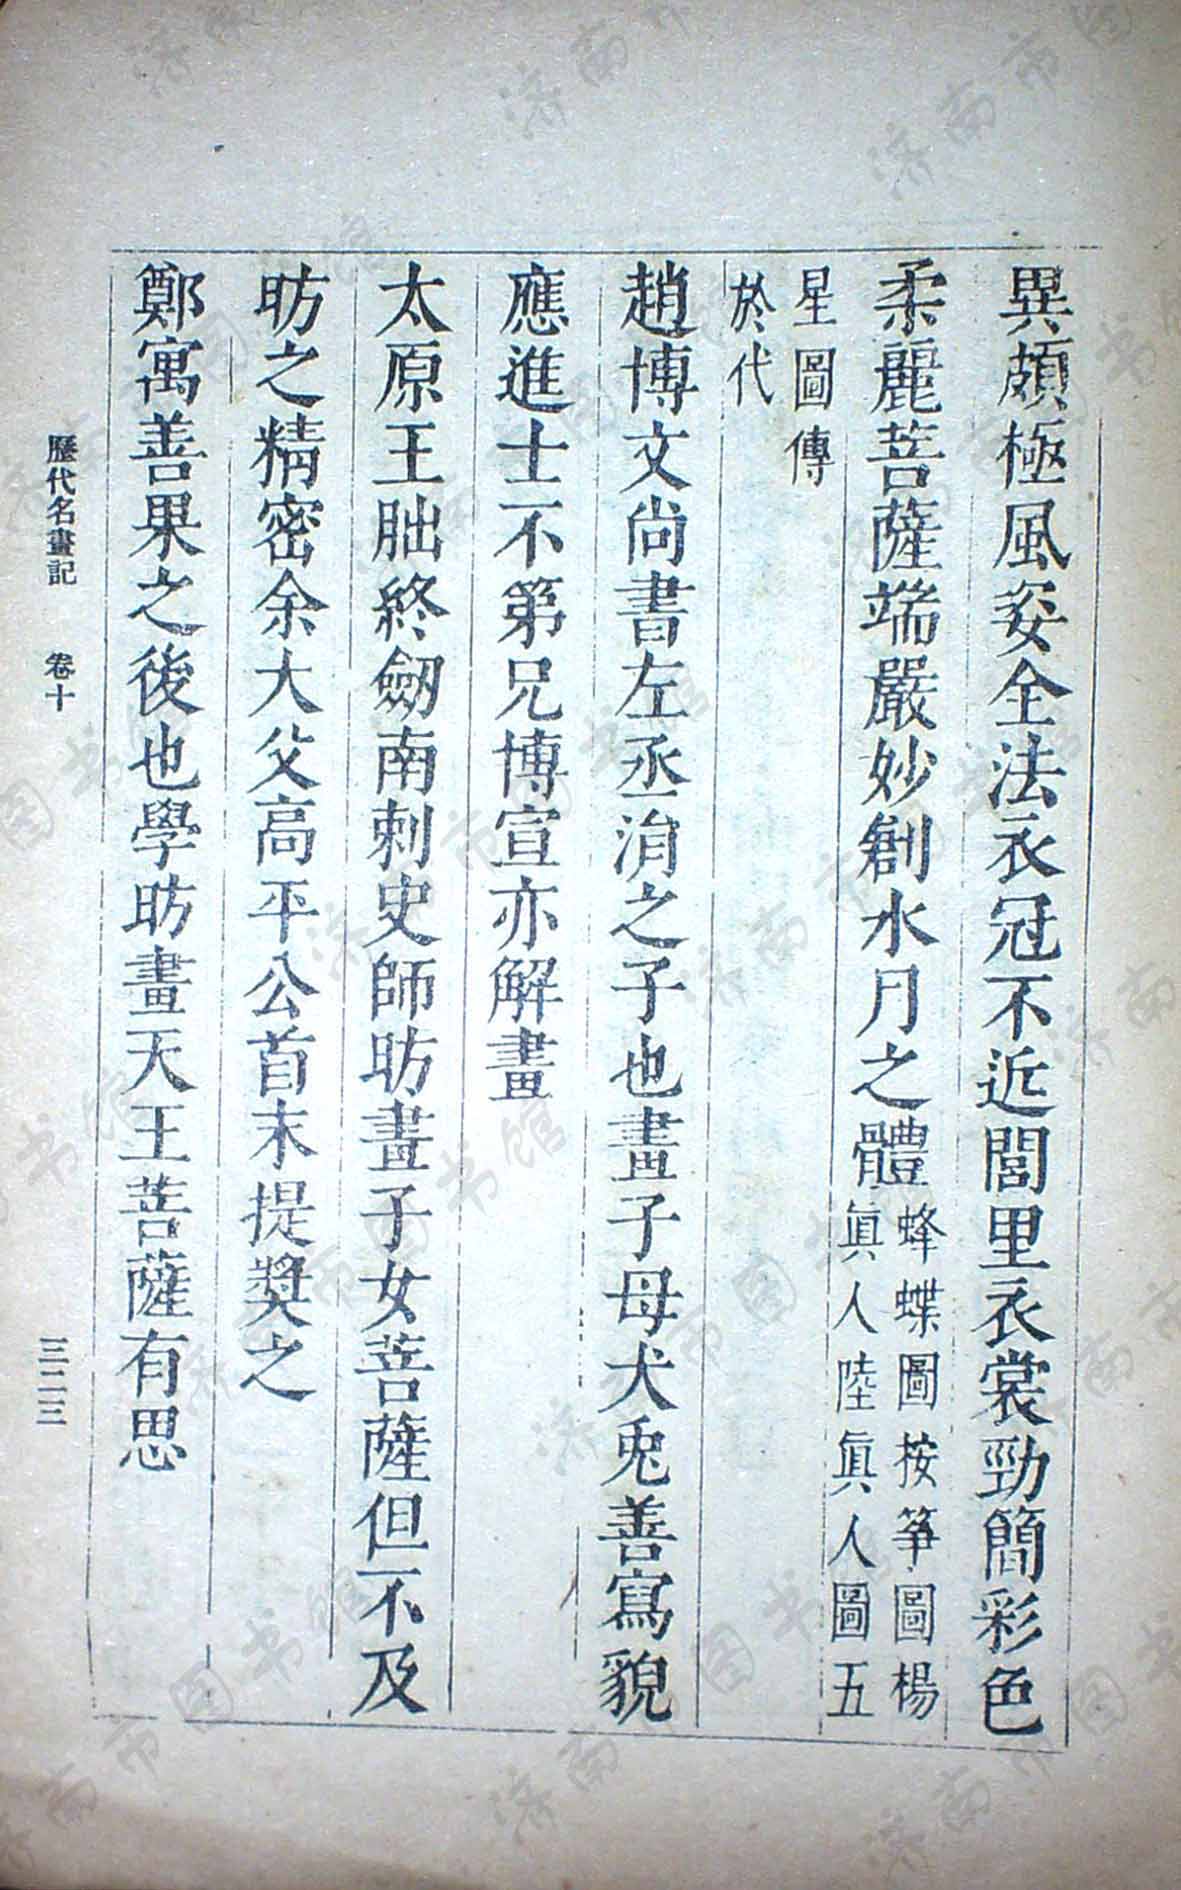 異頗極風姿全法衣冠不近閭里衣裳勁簡彩色
柔麗菩薩端嚴妙創水月之體
蜂蝶圖按箏圖楊
眞人陸眞人圖五
星圖傳
於代
趙博文尚書左丞涓之子也畫子母犬兎善寫貌
應進士不第兄博宣亦解畫
太原王朏終劒南刺史師昉畫子女菩薩但不及
昉之精密余大父高平公首末提獎之
鄭寓善果之後也學昉畫天王菩薩有思
歷代名畫記 卷十 三二三
济南市图书馆